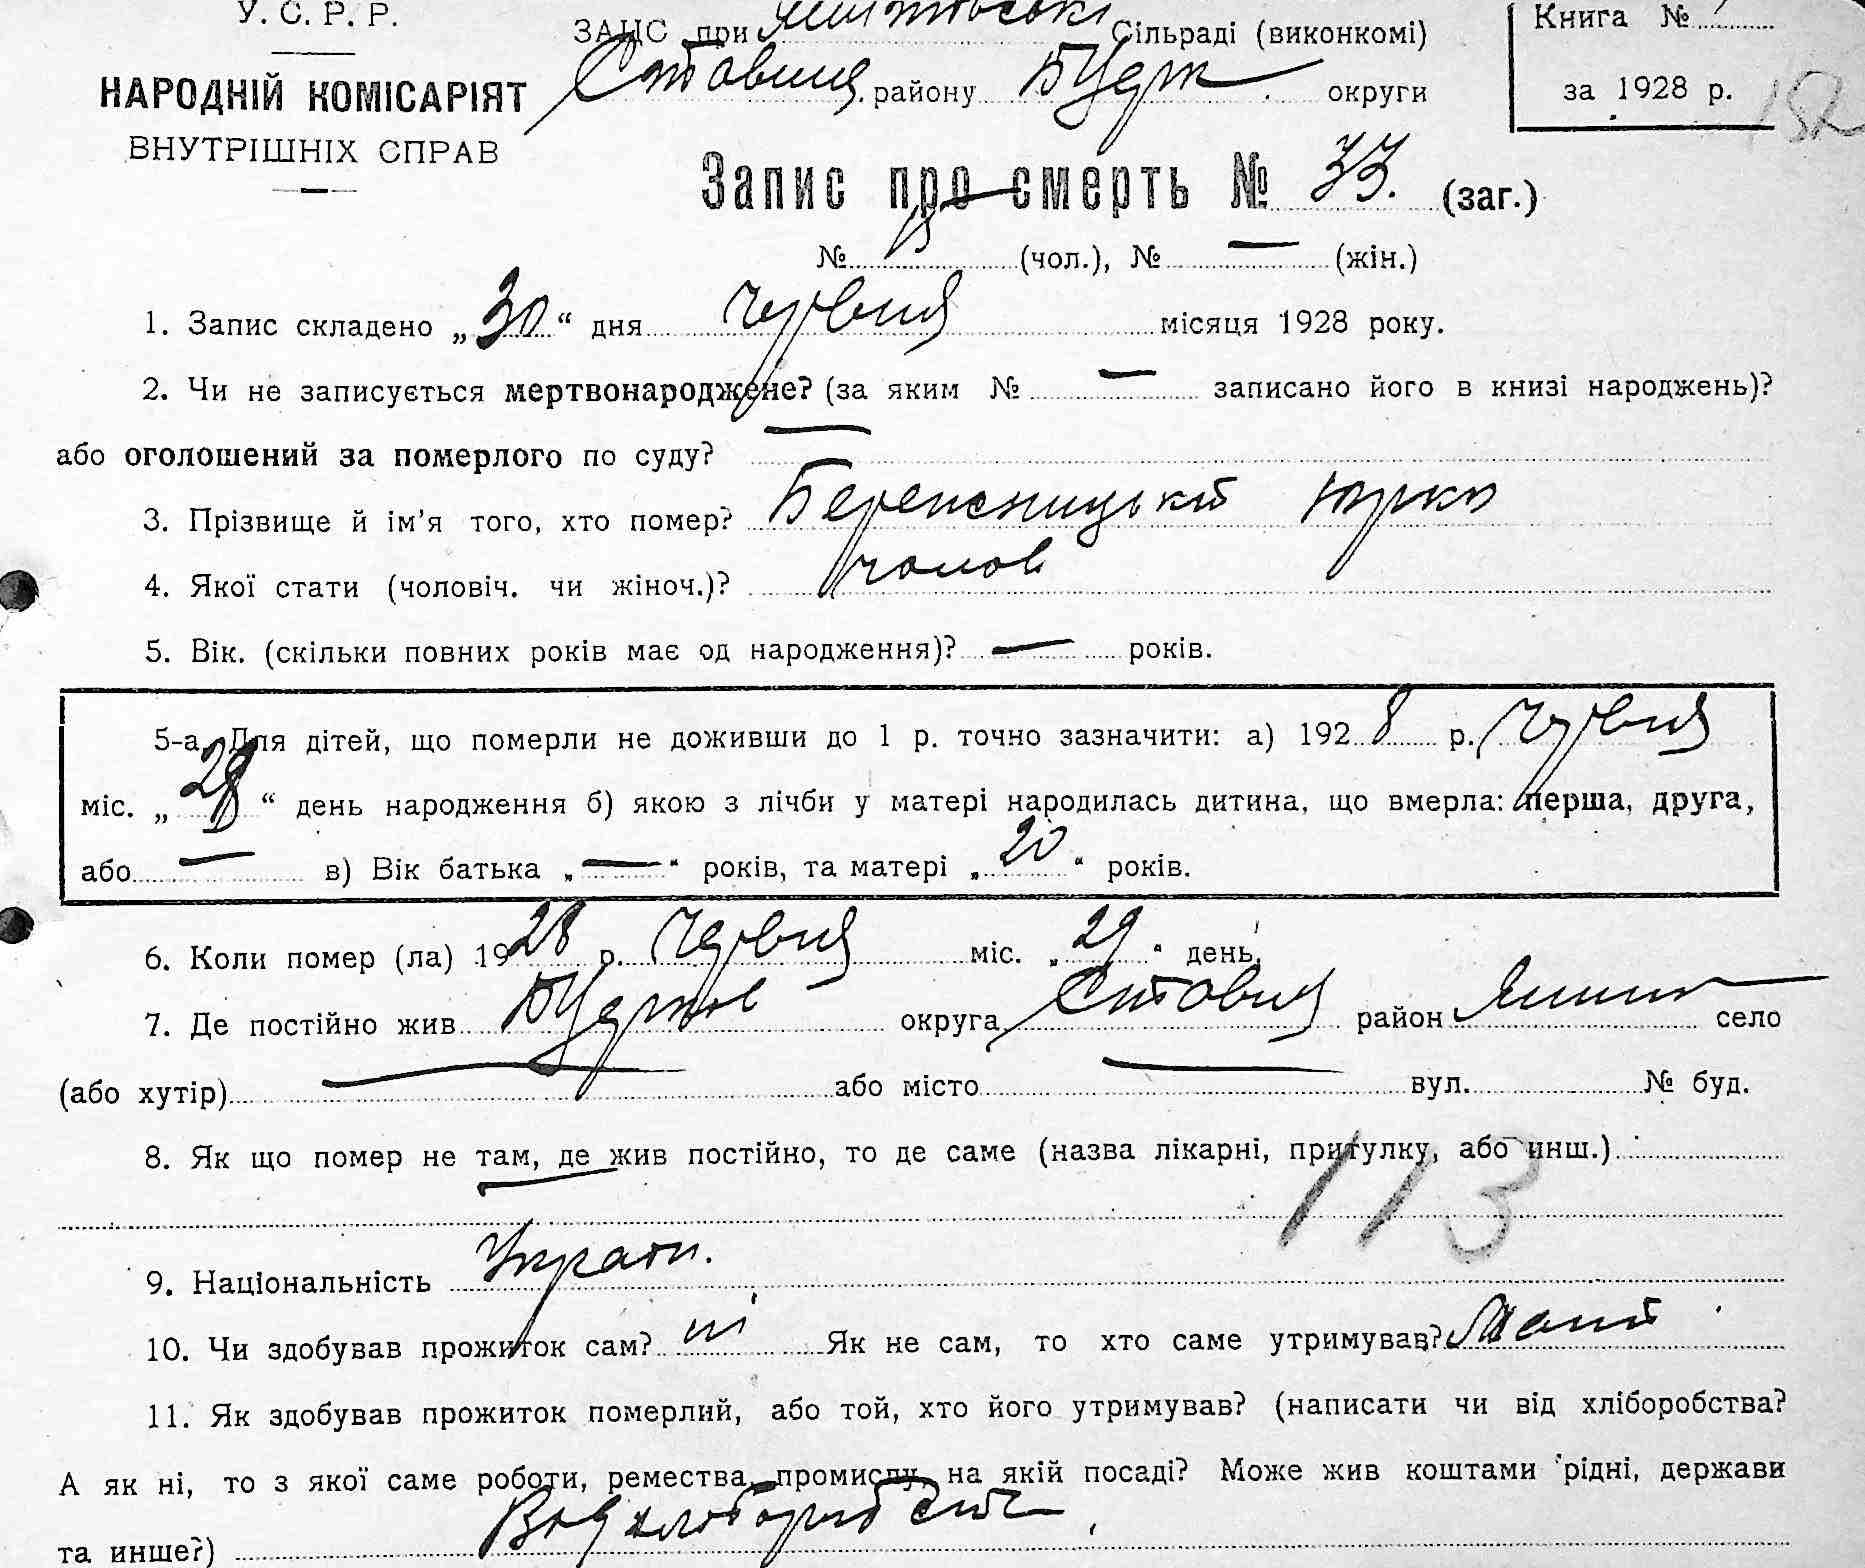 У. С. Р. Р.
НАРОДНІЙ КОМІСАРІЯТ
ВНУТРІШНІХ СПРАВ
ЗАЦС при Сільраді (виконкомі)
Ставищ. району БЦерк округи
Книга №
за 1928 р.
182
Запис про смерть № 33. (заг.)
№ (чол.), № — (жін.)
1. Запис складено „30“ дня червня місяця 1928 року.
2. Чи не записується мертвонароджене? (за яким № — записано його в книзі народжень)?
або оголошений за померлого по суду? —
3. Прізвище й ім'я того, хто помер? Юрко
4. Якої стати (чоловіч. чи жіноч.)? чолов
5. Вік. (скільки повних років має од народження)? — років.
5-а. Для дітей, що померли не доживши до 1 р. точно зазначити: а) 1928 р. червня
міс. „28“ день народження б) якою з лічби у матері народилась дитина, що вмерла: перша, друга,
або — в) Вік батька „—“ років, та матері „20“ років.
6. Коли помер (ла) 1928 р. червня міс. „29“ день.
7. Де постійно жив БЦерков округа Ставищ район село
(або хутір) — або місто — вул. № буд.
8. Як що помер не там, де жив постійно, то де саме (назва лікарні, притулку, або инш.)
113
9. Національність Україн.
10. Чи здобував прожиток сам? ні Як не сам, то хто саме утримував? Мати
11. Як здобував прожиток померлий, або той, хто його утримував? (написати чи від хліборобства?
А як ні, то з якої саме роботи, ремества, промислу, на якій посаді? Може жив коштами рідні, держави
та инше?) Від хліборобства